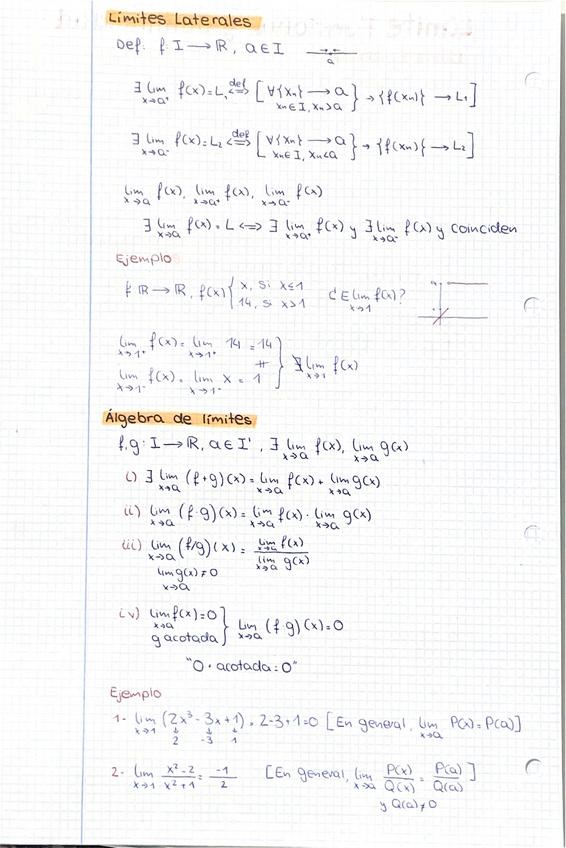 Límites Laterales
Def: f: I → R, a ∈ I
a
∃ lim x→a⁺ f(x) = L₁ ⟺ def [∀{xn} → a xn ∈ I, xn > a} → {f(xn)} → L₁]
∃ lim x→a⁻ f(x) = L₂ ⟺ def [∀{xn} → a xn ∈ I, xn < a} → {f(xn)} → L₂]
lim x→a f(x), lim x→a⁺ f(x), lim x→a⁻ f(x)
∃ lim x→a f(x) = L ⟺ ∃ lim x→a⁺ f(x) y ∃ lim x→a⁻ f(x) y coinciden
Ejemplo
f: R → R, f(x) { x, si x ≤ 1
14, si x > 1 ¿∃ lim x→1 f(x)?
lim x→1⁺ f(x) = lim x→1⁺ 14 = 14
≠ } ∄ lim x→1 f(x)
lim x→1⁻ f(x) = lim x→1⁻ x = 1
Álgebra de límites
f,g: I → R, a ∈ I', ∃ lim x→a f(x), lim x→a g(x)
i) ∃ lim x→a (f+g)(x) = lim x→a f(x) + lim x→a g(x)
ii) lim x→a (f·g)(x) = lim x→a f(x) · lim x→a g(x)
iii) lim x→a (f/g)(x) = lim x→a f(x) / lim x→a g(x)
lim x→a g(x) ≠ 0
iv) lim x→a f(x) = 0
g acotada } lim x→a (f·g)(x) = 0
"0 · acotada = 0"
Ejemplo
1- lim x→1 (2x³ - 3x + 1) = 2-3+1=0 [En general, lim x→a P(x) = P(a)]
2 -3 1
2- lim x→1 x²-2 / x²+1 = -1/2 [En general, lim x→a P(x)/Q(x) = P(a)/Q(a)]
y Q(a) ≠ 0